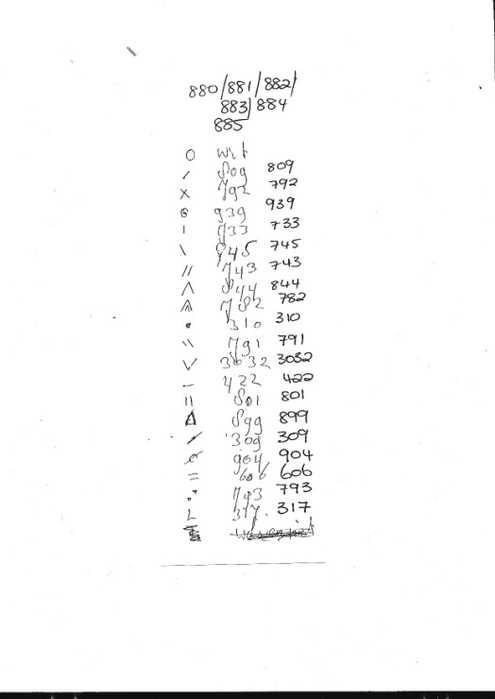 880/881/882/
883/884
885
O wit
/ 809 809
X 792 792
939 939
| 733 733
\ 745 745
// 743 743
Λ 844 844
782 782
• 310 310
\\ 791 791
V 3032 3032
– 422 422
|| 801 801
Δ 899 899
309 309
ø 904 904
= 606 606
793 793
L 317. 317